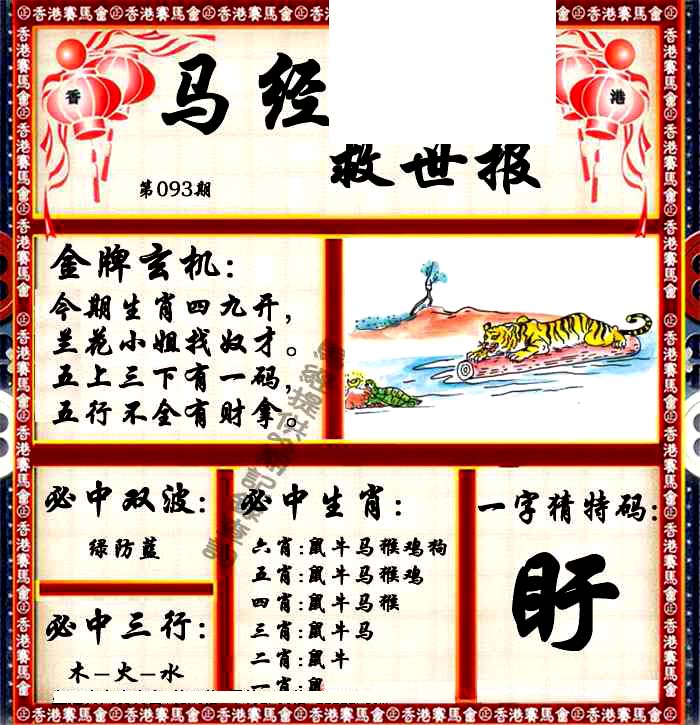 香港賽馬會
香 港
马经
救世报
第093期
金牌玄机:
今期生肖四九开,
兰花小姐找奴才。
五上三下有一码,
五行不全有财拿。
必中双波:
绿防蓝
必中三行:
木-火-水
必中生肖:
六肖:鼠牛马猴鸡狗
五肖:鼠牛马猴鸡
四肖:鼠牛马猴
三肖:鼠牛马
二肖:鼠牛
一肖:鼠
一字猜特码:
盱